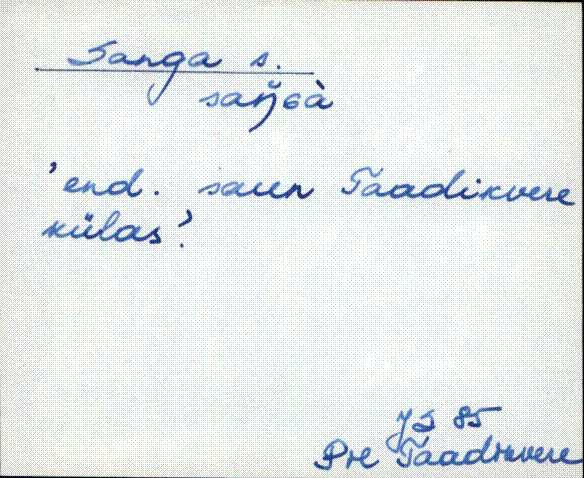 Sanga s.
saŋ̆ɢà
'end. saun Taadikvere
külas'
JS 85
Pil Taadikvere